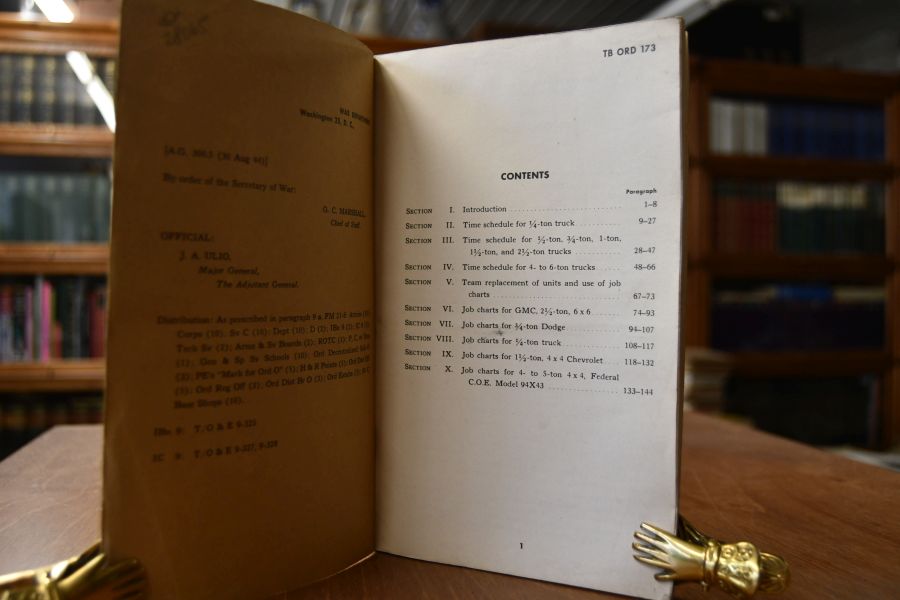 Washington 25, D. C.,
[A.G. 300.5 (30 Aug 44)]
By order of the Secretary of War:
G. C. MARSHALL,
Chief of Staff.
OFFICIAL:
J. A. ULIO,
Major General,
The Adjutant General.
Distribution: As prescribed in paragraph 9 a FM 21-6
Corps (10); Sv C (10); Dept (10); D (2); IBn 9
Tech Sv (2); Arms & Sv Boards (1); ROTC (1);
(1); Gen & Sp Sv Schools (10);
(2); PE's "Mark for Ord.O" (5); H & R Points (1);
(1); Ord Reg Off (3); Ord Dist Hr O (3);
Base Shops (10).
IBn 9: T/O & E 9-325
IC 9: T/O & E 9-327; 9-328
TB ORD 173
CONTENTS
Paragraph
SECTION I. Introduction 1–8
SECTION II. Time schedule for ¼-ton truck 9–27
SECTION III. Time schedule for ½-ton, ¾-ton, 1-ton,
1½-ton, and 2½-ton trucks 28–47
SECTION IV. Time schedule for 4- to 6-ton trucks 48–66
SECTION V. Team replacement of units and use of job
charts 67–73
SECTION VI. Job charts for GMC, 2½-ton, 6 x 6 74–93
SECTION VII. Job charts for ¾-ton Dodge 94–107
SECTION VIII. Job charts for ¼-ton truck 108–117
SECTION IX. Job charts for 1½-ton, 4 x 4 Chevrolet 118–132
SECTION X. Job charts for 4- to 5-ton 4 x 4, Federal
C.O.E. Model 94X43 133–144
1